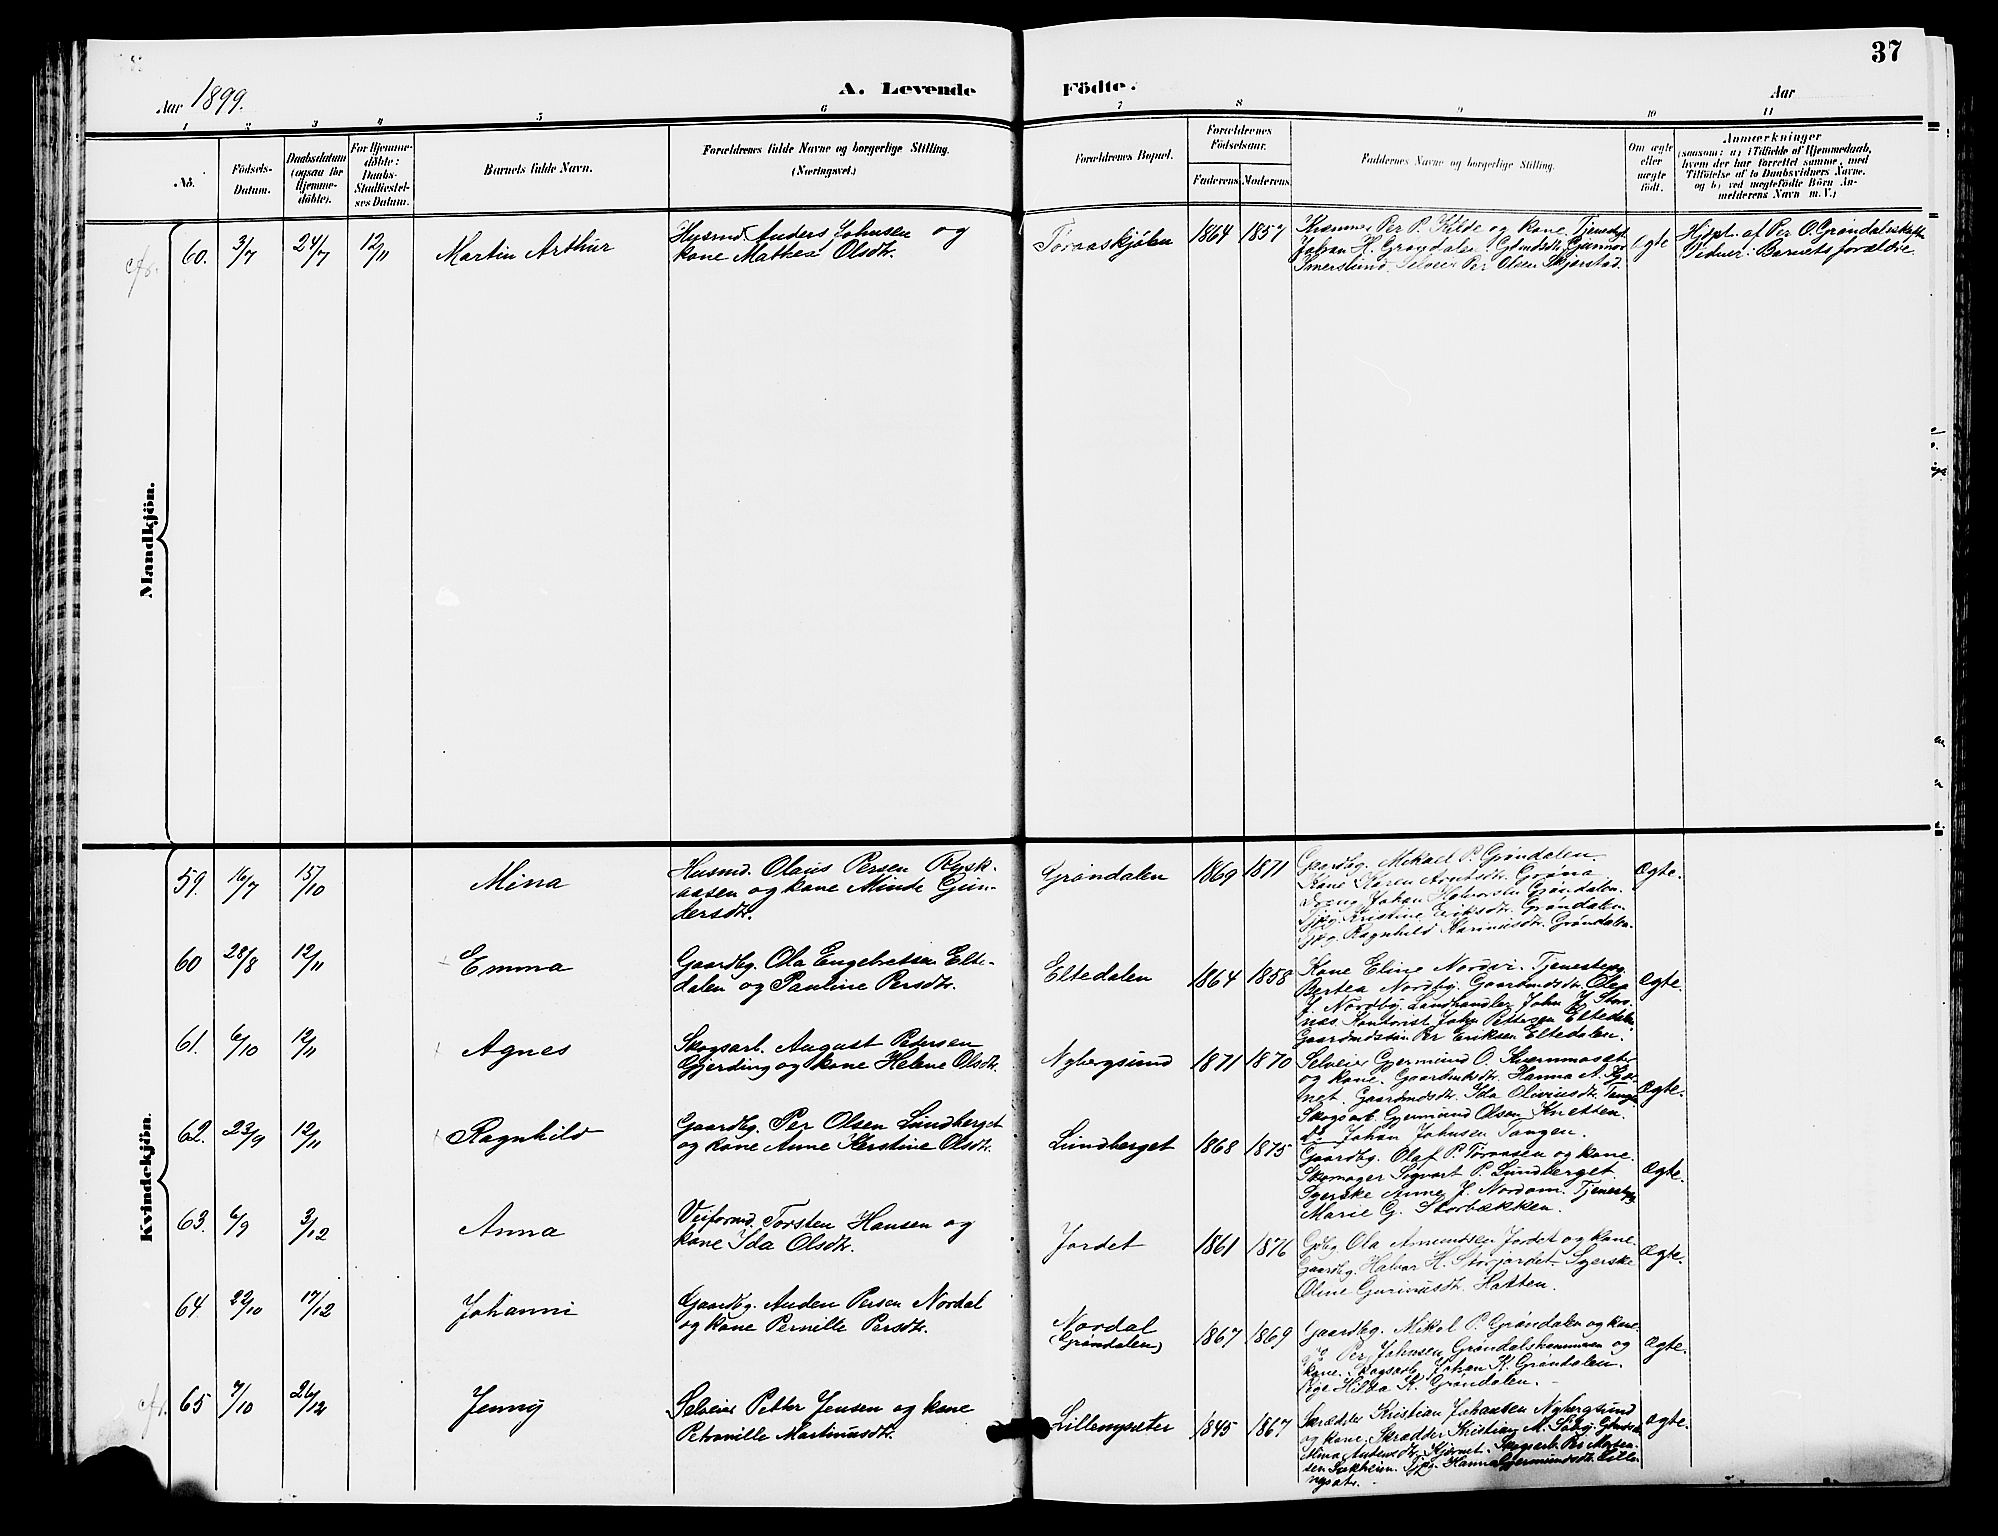 37
Aar 1899.
A. Levende Födte.
Aar
1 2 3 4 5 6 7 8 9 10 11
No.
Födsels-
Datum.
Daabsdatum
(ogsaa for
Hjemme-
døbte).
For Hjemme-
døbte:
Daabs-
Stadfæstel-
ses Datum.
Barnets fulde Navn.
Forældrenes fulde Navne og borgerlige Stilling.
(Næringsvei.)
Forældrenes Bopæl.
Forældrenes
Födselsaar.
Faderens. Moderens.
Faddernes Navne og borgerlige Stilling.
Om ægte
eller
uægte
født.
Anmærkninger
(saasom: a) i Tilfælde af Hjemmedaab,
hvem der har forrettet samme, med
Tilföielse af to Daabsvidners Navne,
og b) ved uægtefødte Börn An-
melderens Navn m. V.)
Mandkjön.
60. 3/7 24/7 12/11 Martin Arthur
Husmd. Anders Johnsen og
kone Mathea Olsdtr.
Toraaskjølen 1864 1857
Per P. Kilde og kone. Tjenestg.
Johan H. Grøndalen. Gdmdsdtr. Gunnor
Imerslund. Selveier Per Olsen Skjærstad.
Ægte
Hjdpt. af Per O. Grøndalsbakken
Vidner: Barnets forældre.
Kvindekjön.
59. 16/7 15/10 Mina
Husmd. Olaus Persen Rysk-
aasen og kone Minde Gun-
dersdtr.
Grøndalen 1869 1871
Gaardbg. Mikael P. Grøndalen.
Kone Karen Arntsdtr. Grøna.
Dreng Johan Halvorsen Grøndalen.
Tjpg. Kristine Eriksdtr. Grøndalen.
Tjpg. Ragnhild Karinusdtr. Grøndalen.
Ægte.
60 28/8 12/11 Emma
Gaardbg. Ola Engebretsen Elte-
dalen og Pauline Persdtr.
Eltedalen 1864 1858
Kone Eline Nordvi. Tjenestepg.
Bertea Nordby. Gaardmdsdtr. Olea
J. Nordby. Landhandler John J. Stor-
næs. Kontorist John Pettersen Eltedalen
Gaardmdssøn Per Eriksen Eltedalen.
Ægte.
61. 6/10 12/11 Agnes
Skogsarb. August Pedersen
Gjerding og kone Helene Olsdtr.
Nybergsund 1871 1870
Selveier Gjermund O. Kvernmosæter
og kone. Gaardmdsdtr. Hanna A. Kjør-
net. Gaardmdsdtr. Ida Oliviusdtr. Tangen
Skogsarb. Gjermund Olsen Knetten.
Do. Johan Johnsen Tangen.
Ægte.
62. 23/9 12/11 Ragnhild
Gaardbg. Per Olsen Lundberget
og kone Anne Kerstine Olsdtr.
Lundberget 1868 1875
Gaardbg. Olaf P. Toraasen og kone.
Skomager Sigvart P. Lundberget.
Syerske Anne J. Nordom. Tjenestepg.
Marie G. Storbækken.
Ægte.
63. 6/9 3/12 Anna
Veiformd. Torsten Hansen og
kone Ida Olsdtr.
Jordet 1861 1876
Gdbg. Ola Amundsen Jordet og kone.
Gaardbg. Halvor H. Storjordet. Syerske
Oline Gurinusdtr. Hatten.
Ægte.
64. 22/10 17/12 Johanne
Gaardbg. Anders Persen Nordal
og kone Pernille Persdtr.
Nordal
(Grøndalen)
1867 1869
Gaardbg. Mikal P. Grøndalen og kone.
Do. Per Johnsen Grøndalshammeren og
kone. Skogsarb. Johan K. Grøndalen.
Pige Hilda K. Grøndalen.
Ægte.
65 7/10 26/12 Jenny
Selveier Petter Jensen og kone
Petronille Martinusdtr.
Lillenysæter 1845 1867
Skrædder Kristian Johansen Nybergsund
og kone. Skrædder Kristian M. Sæby. Gdmdsdtr.
Mina Andersdtr. Kjørnet. Skogsarb. Per Morten-
sen Sækheim. Tjpg. Hanna Gjermundsdtr. Lille-
nysætr.
Ægte.